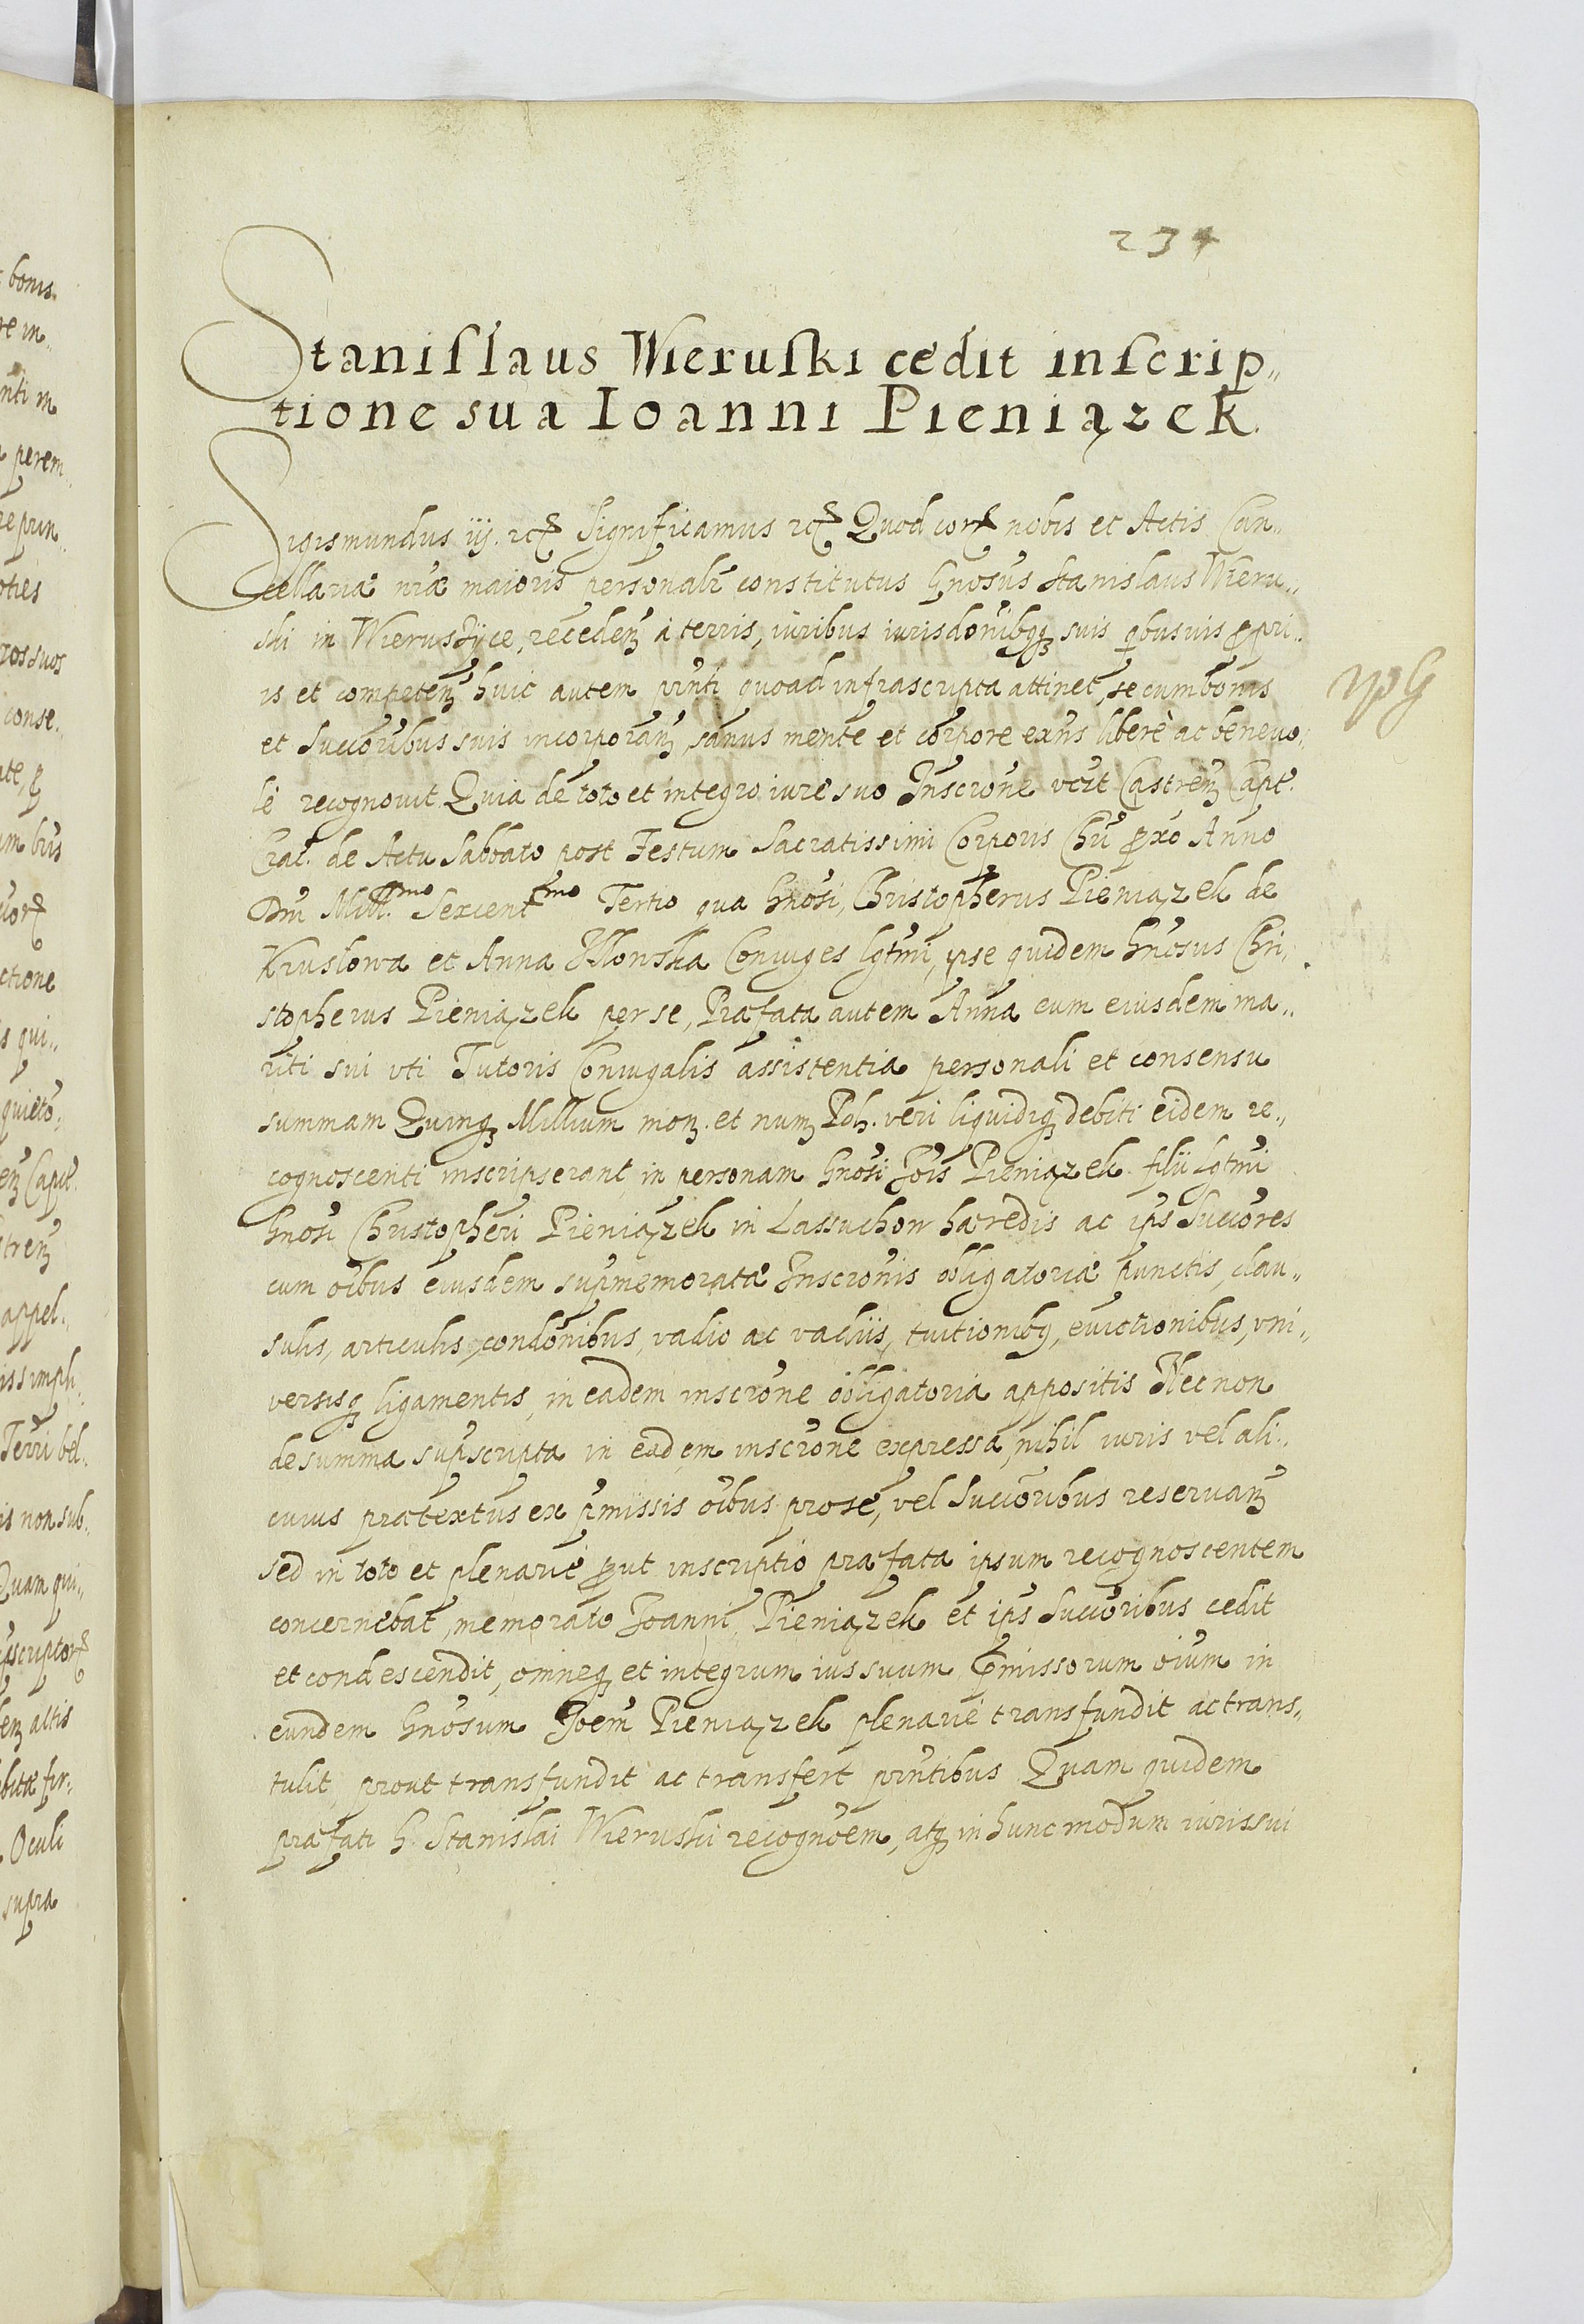 234
Stanislaus Wieruski cedit inscrip„
tione sua Ioanni Pieniązek.
Sigismundus iij. etc. Significamus etc. Quod cor. nobis et Actis Can„
cellariæ nræ maioris personalr constitutus Gnosus Stanislaus Wieru„
ski in recedeñ à terris, iuribus iurisdonibqȝ suis qbusuis ppri„
is et competeñ huic autem pnti quoad infrascripta attinet, se cum bonis
et Succoribus suis incorporañ, sanus mente et corpore exns libere ac beneuo„
le recognovit Quia de toto et integro iure suo Inscrone Castreñ Capt.
Crac. de Actu Sabbato post Festum Sacratissimi Corporis Chri pxo Anno
Dni Mill.mo Sexcentmo Tertio qua Gnosi, Christopherus Pieniązek de
Kruslowa et Anna Coniuges lgtmi, ipse quidem Gnosus Chri„
stopherus Pieniązek per se, Præfata autem Anna cum eiusdem ma„
riti sui uti Tutoris Coniugalis assistentia personali et consensu
summam Quinqȝ Millium moȝ. et numȝ Pol. veri liquidiqȝ debiti eidem re„
cognoscenti inscripserant, in personam Gnosi Jois Pieniązek filii lgtmi
Gnosi Christopheri Pieniązek in Lassuchow hæredis ac ips Succores
cum oibus eiusdem supmemoratæ Inscronis obligatoriæ punctis, clau„
sulis, articulis, condonibus, vadio ac vadiis, tuitionibq, euictionibus, vni„
versisqȝ ligamentis, in eadem inscrone obligatoria appositis Nec non
de summa supscripta in eadem inscrone expressa, nihil iuris vel ali„
cuius prætextus ex pmissis oibus pro se, vel Succoribus reseruañ
sed in toto et plenarie put inscriptio præfata ipsum recognoscentem
concernebat, memorato Joanni Pieniązek et ips Succoribus cedit
et condescendit, omneqȝ et integrum ius suum pmissorum oium in
eundem Gnosum Joem Pieniązek plenarie transfundit ac trans„
tulit, prout transfundit ac transfert pntibus Quam quidem
præfati G. Stanislai Wieruski recognoem, atqȝ in hunc modum iuris sui